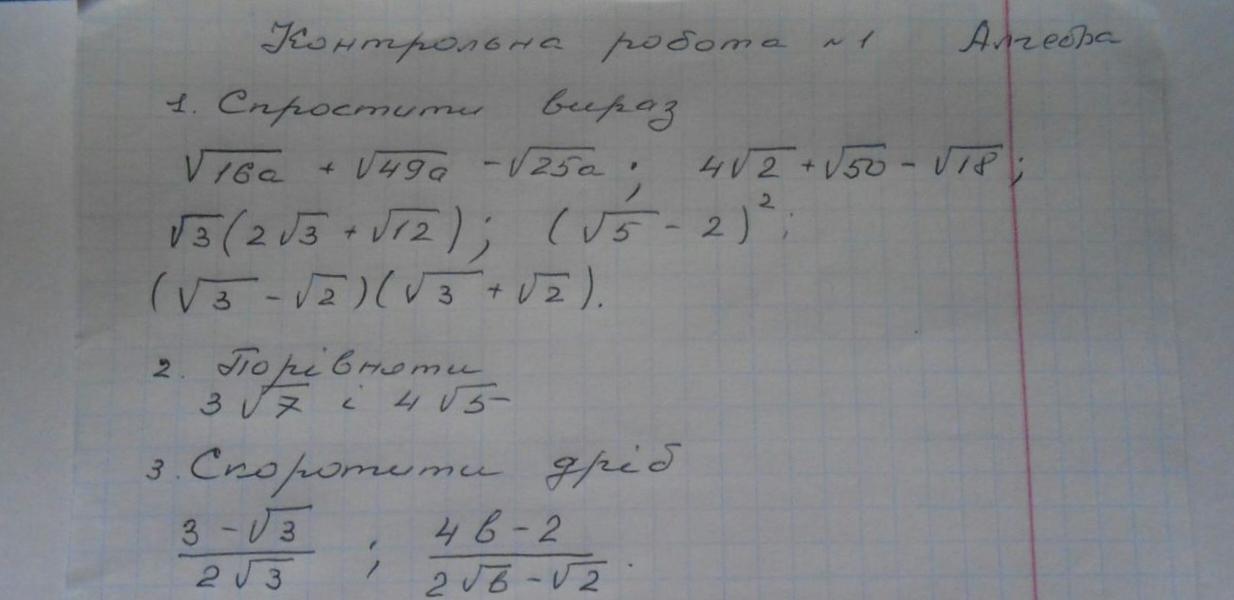 Контрольна робота №1 Алгебра
1. Спростити вираз
√16a + √49a - √25a ; 4√2 + √50 - √18 ;
√3(2√3 + √12) ; (√5 - 2)² ;
(√3 - √2)(√3 + √2).
2. Порівняти
3√7 і 4√5
3. Скоротити дріб
(3 - √3)/(2√3) ; (4b - 2)/(2√b - √2) .